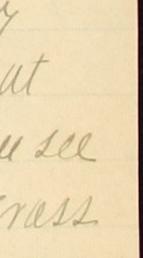 y
ut
u see
rass